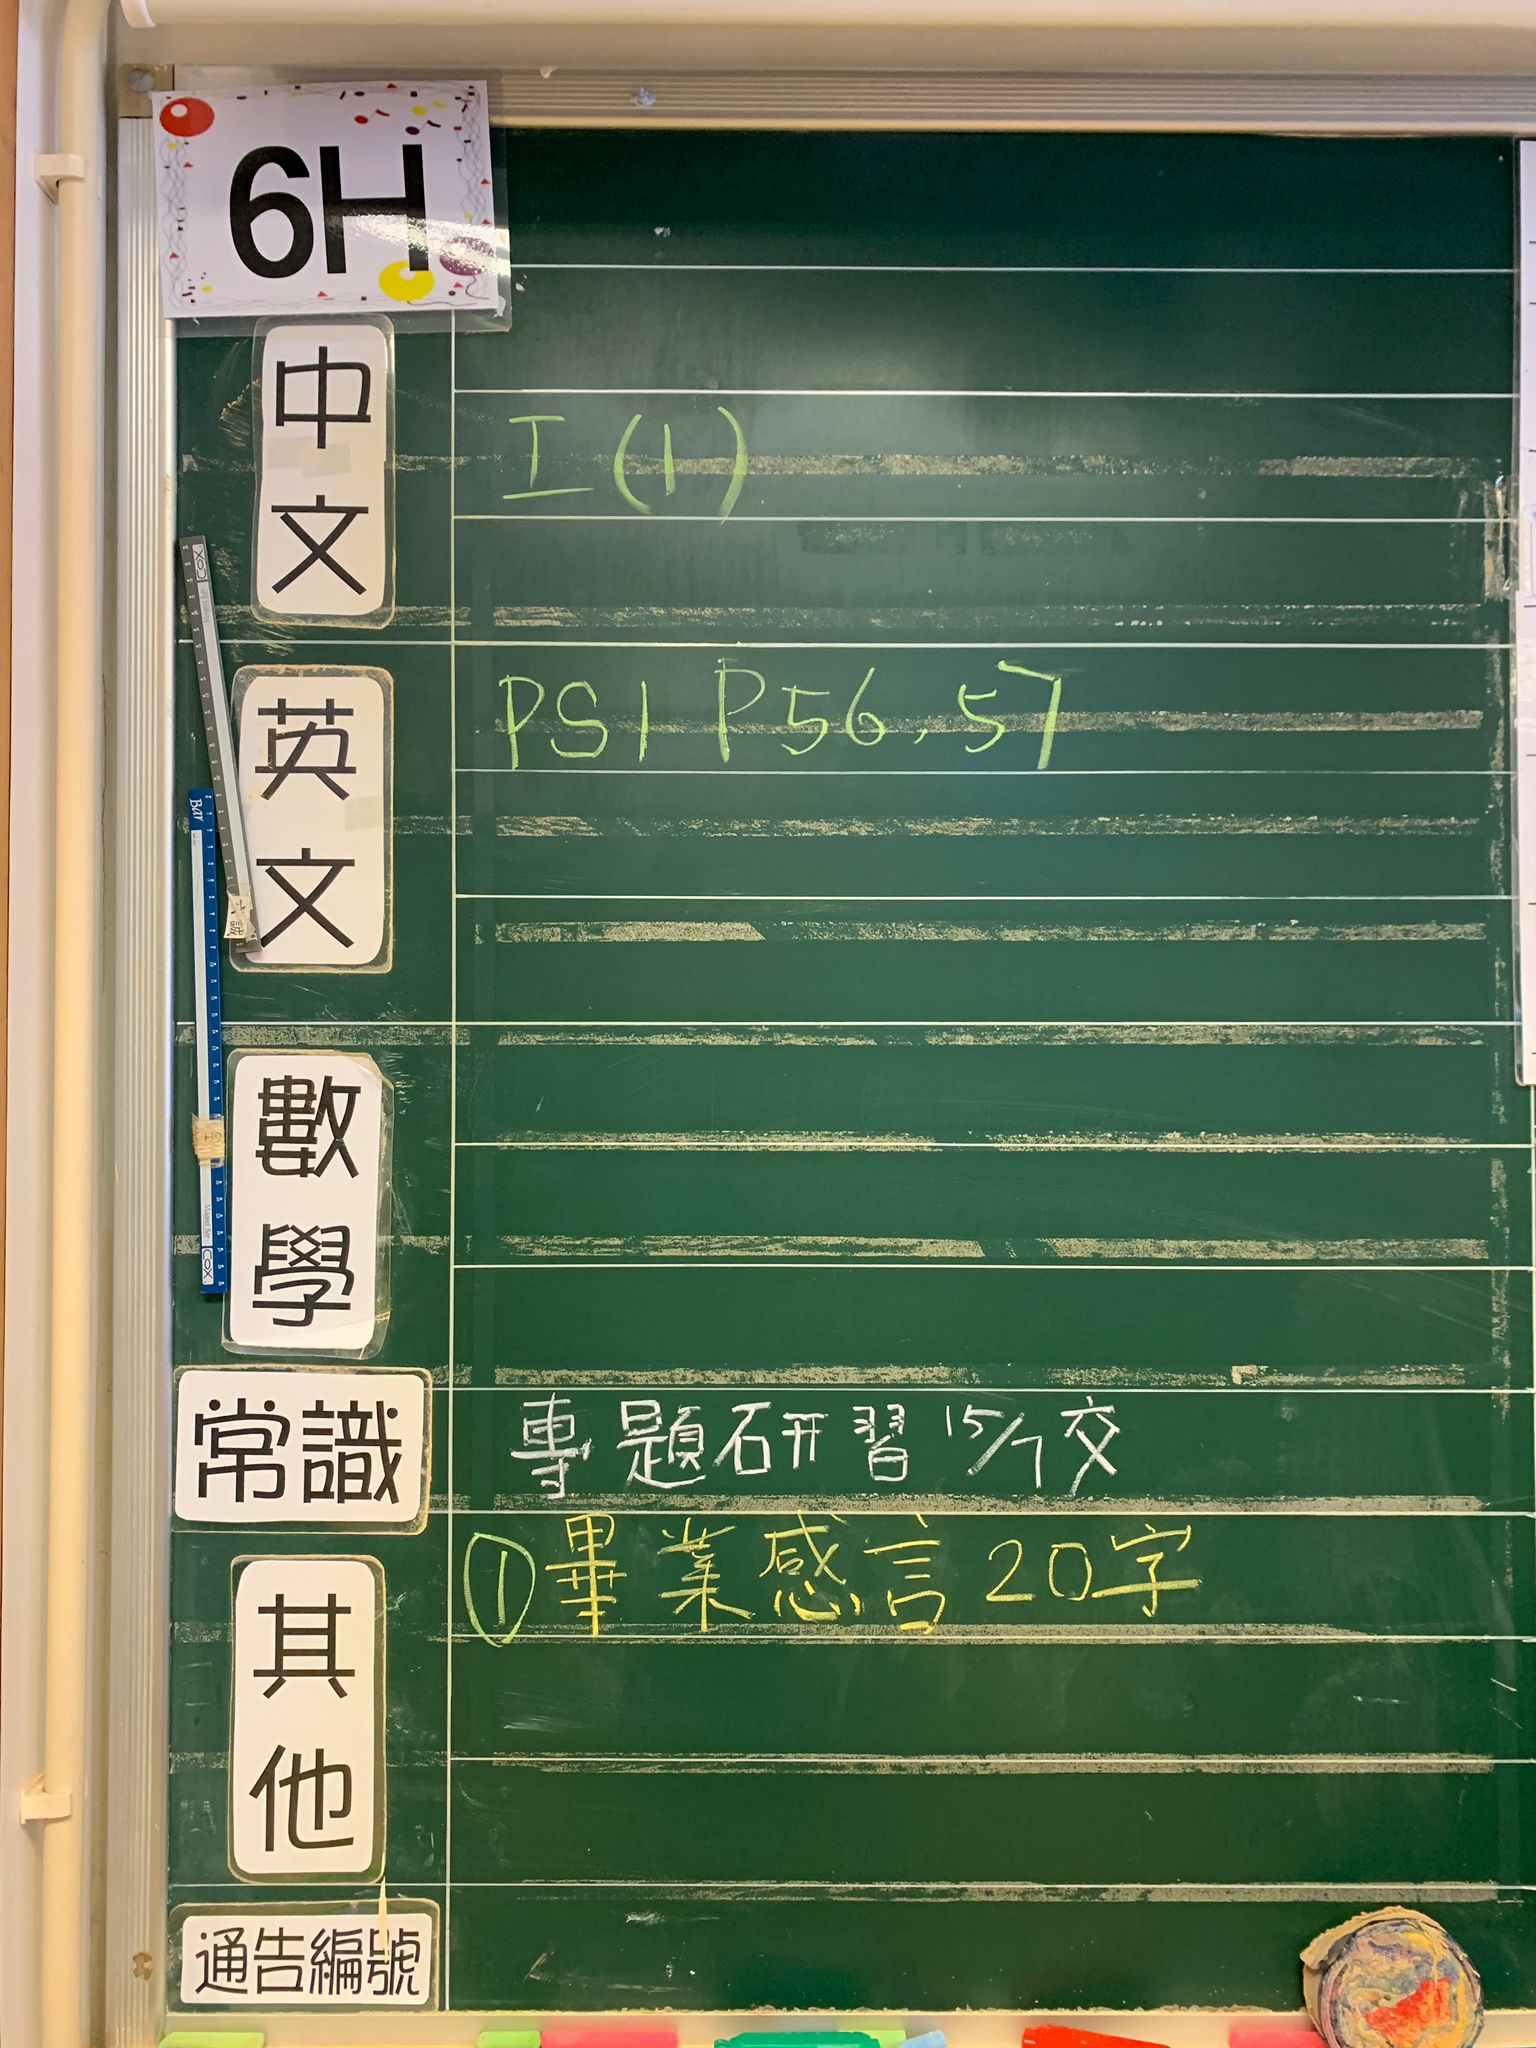 6H
中文
I (1)
英文
PS1 P56,57
數學
常識
專題研習 15/7交
其他
①畢業感言20字
通告編號
COX
六誠
Bar
6H
Magnet Bar
COX